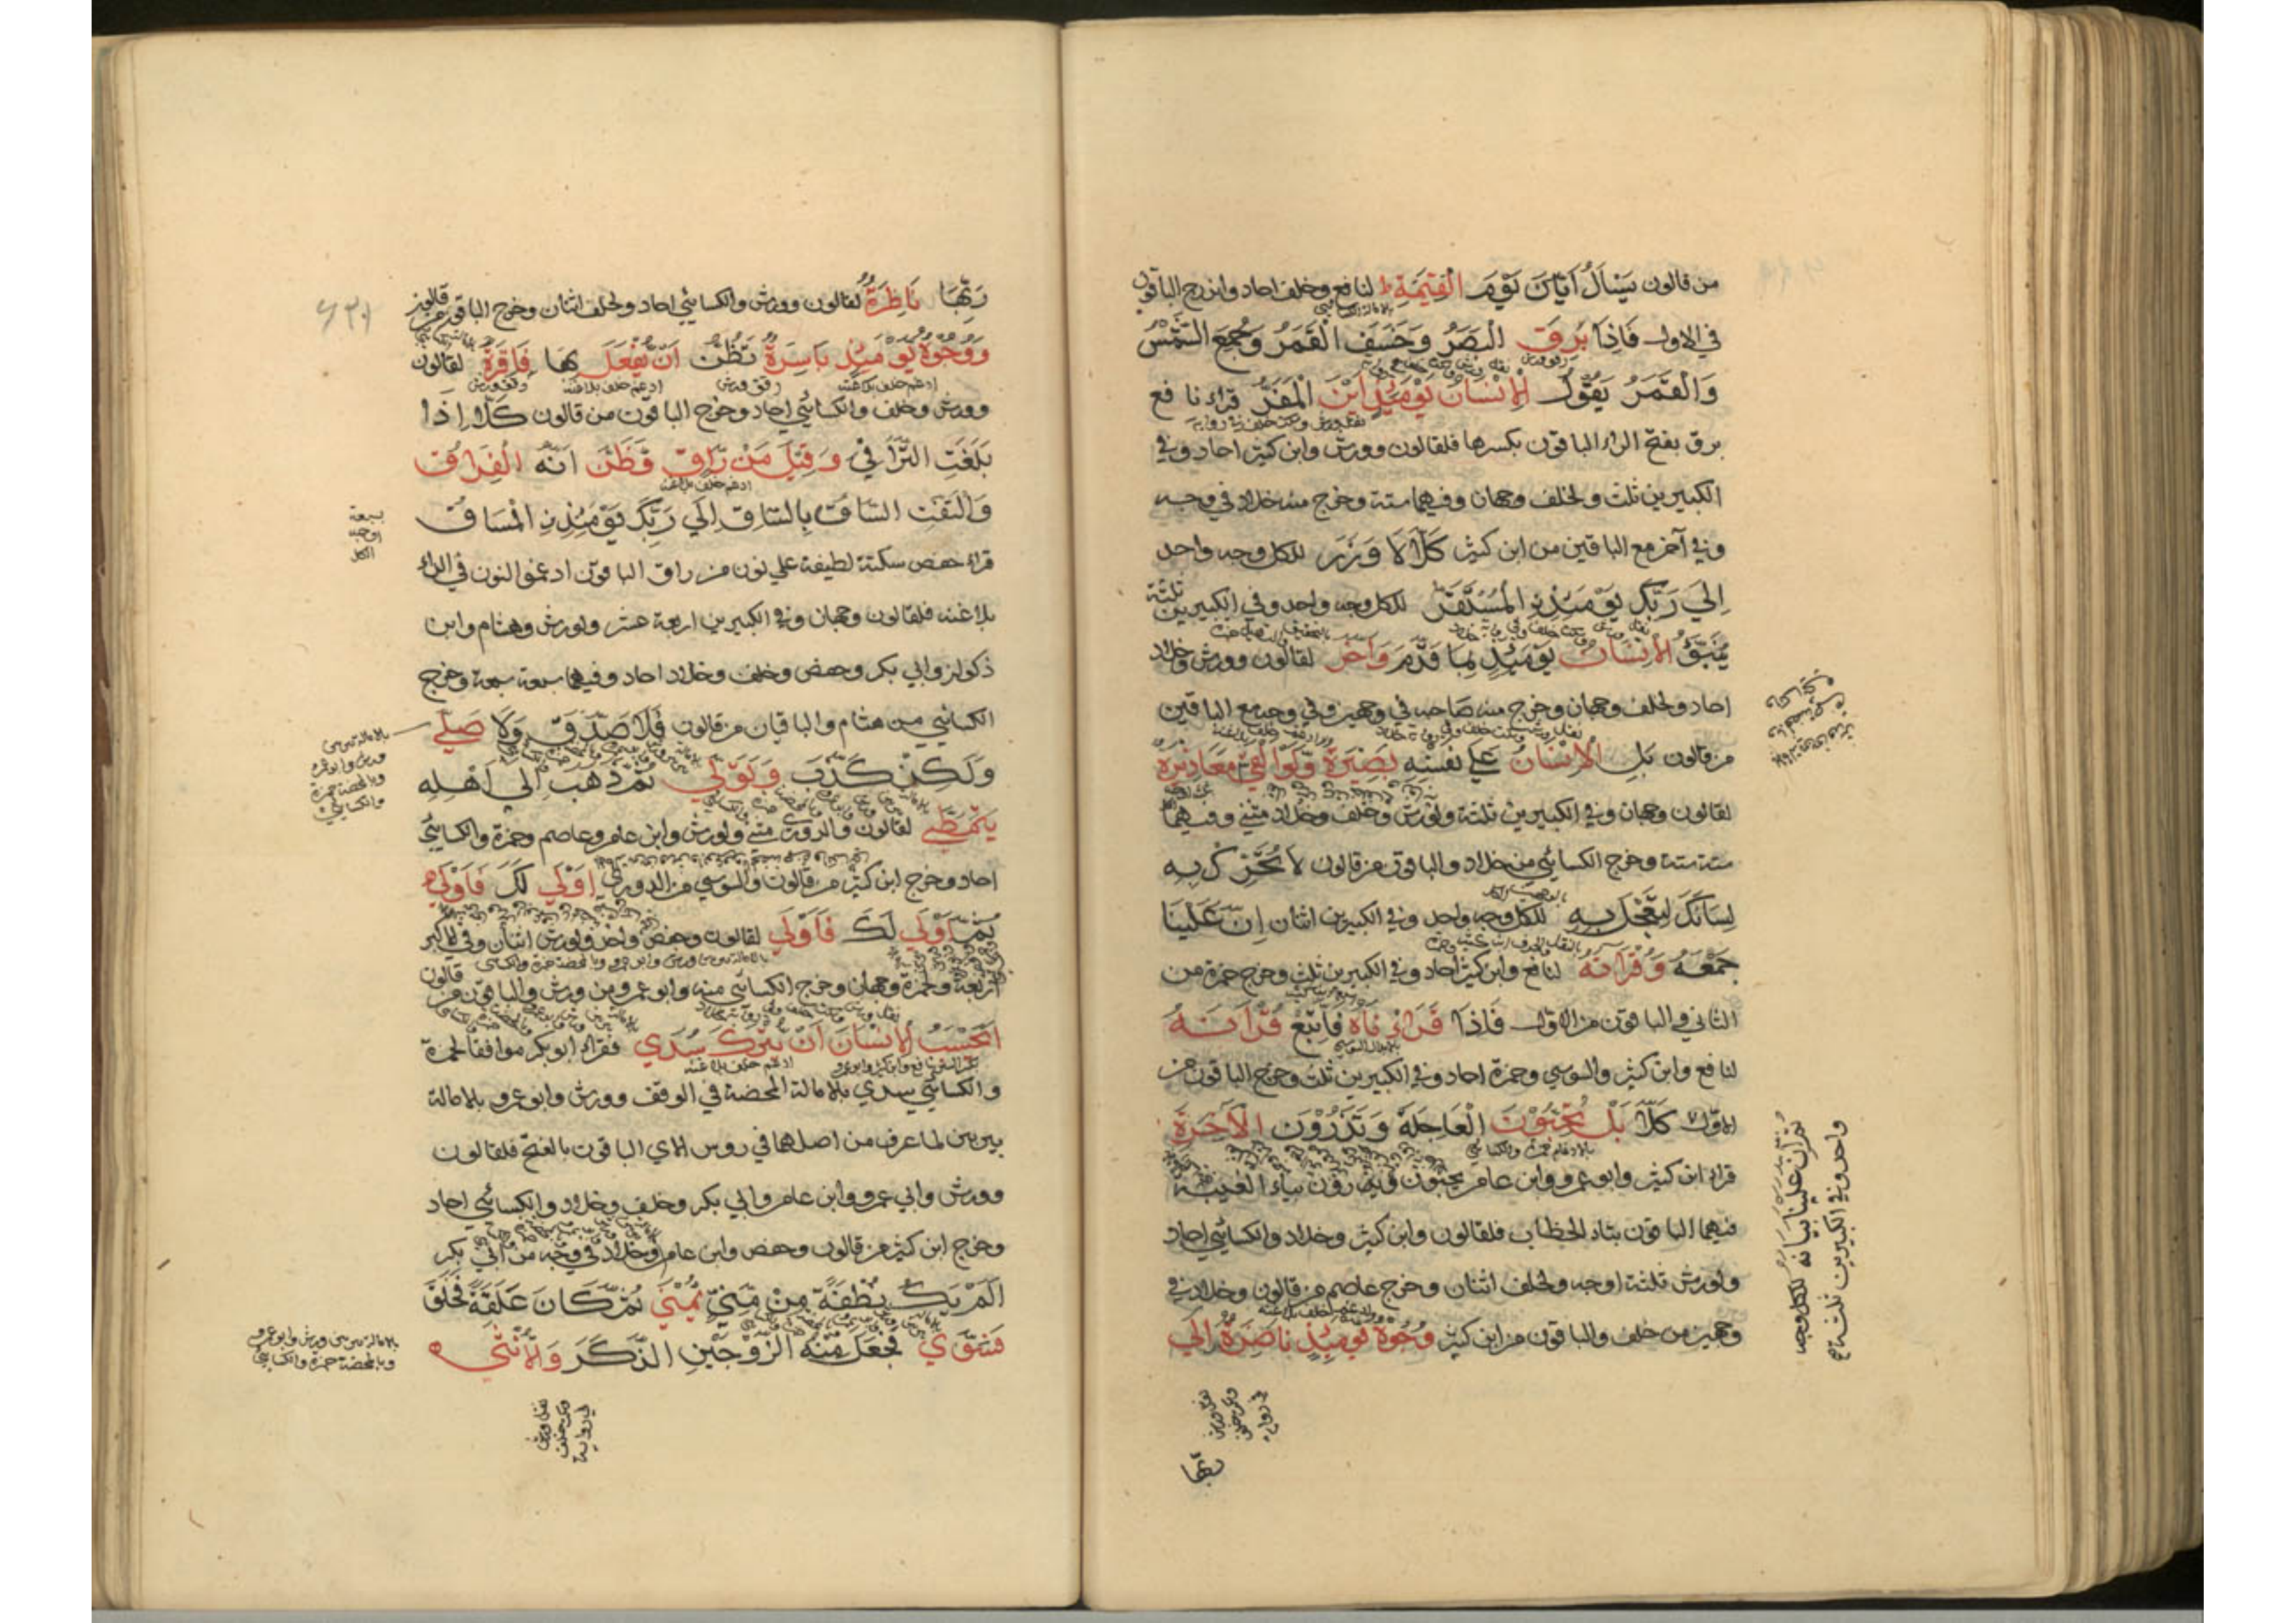 من قالون يسال ايان يوم القيمة ط لنافع وخلف احاد واندرج الباقون
في الاول فاذا برق البصر وخسف القمر وجمع الشمس
والقمر يقول الانسان يومئذ اين المفر قراء نافع
برق بفتح الراء الباقون بكسرها فلقالون وورش وابن كثير احاد وفي
الكبيرين ثلث ولخلف وجهان وفيهما ستة وخرج منه خلاد في وجه
وفي آخر مع الباقين من ابن كثير كلا لا وزر للكل وجه واحد
الي ربك يومئذ المستقر للكل وجه واحد وفي الكبيرين ثلثة
ينبؤ الانسان يومئذ بما قدم واخر لقالون وورش وخلاد
احاد ولخلف وجهان وخرج منه صاحبه في وجهين وفي وجه مع الباقين
من قالون بل الانسان علي نفسه بصيرة ولو القي معاذيره
لقالون وجهان وفي الكبيرين ثلثة ولورش وخلف وخلاد مثني وفيهما
ستة ستة وخرج الكسائي من خلاد والباقون من قالون لا تحرك به
لسانك لتعجل به للكل وجه واحد وفي الكبيرين اثنان ان علينا
جمعه وقرآنه لنافع وابن كثير احاد وفي الكبيرين ثلث وخرج حمزة من
الثاني والباقون من الاول فاذا قراناه فاتبع قرآنه
لنافع وابن كثير والسوسي وحمزة احاد وفي الكبيرين ثلث وخرج الباقون من
الاول كلا بل تحبون العاجلة وتذرون الآخرة
قراء ابن كثير وابو عمرو وابن عامر يحبون ويذرون بياء الغيبة
فيهما الباقون بتاء الخطاب فلقالون وابن كثير وخلاد والكسائي احاد
ولورش ثلثة اوجه ولخلف اثنان وخرج عاصم من قالون وخلاد في
وجهين من خلف والباقون من ابن كثير وجوه يومئذ ناضرة الي
ثم ان علينا بيانه للكل وجه
واحد وفي الكبيرين ثلثة
ربها
ربها ناظرة لقالون وورش والكسائي احاد ولخلف اثنان وخرج الباقون من قالون
ووجوه يومئذ باسرة تظن ان يفعل بها فاقرة لقالون
وورش وخلف والكسائي احاد وخرج الباقون من قالون كلا اذا
بلغت التراقي وقيل من راق وظن انه الفراق
والتفت الساق بالساق الي ربك يومئذ المساق
قراء حفص سكتة لطيفة علي نون من راق الباقون ادغموا النون في الراء
بلا غنه فلقالون وجهان وفي الكبيرين اربعة عشر ولورش وهشام وابن
ذكوان وابي بكر وحفص وخلف وخلاد احاد وفيهما سبعة سبعة وخرج
الكسائي من هشام والباقيان من قالون فلا صدق ولا صلي
ولكن كذب وتولي ثم ذهب الي اهله
يتمطي لقالون والدوري مثني ولورش وابن عامر وعاصم وحمزة والكسائي
احاد وخرج ابن كثير من قالون والسوسي من الدوري اولي لك فاولي
ثم اولي لك فاولي لقالون وحفص واحد ولورش اثنان وفي الكبير
اربعة وحمزة وجهان وخرج الكسائي منه وابو عمرو من ورش والباقون من قالون
ايحسب الانسان ان يترك سدي فقراء ابو بكر موافقا لحمزة
والكسائي سدي بالامالة المحضة في الوقف وورش وابو عمرو بالامالة
بين بين لما عرف من اصلهما في روس الاي الباقون بالفتح فلقالون
وورش وابي عمرو وابن عامر وابي بكر وخلف وخلاد والكسائي احاد
وخرج ابن كثير من قالون وحفص وابن عامر وخلاد في وجه من ابي بكر
الم يك نطفة من مني يمني ثم كان علقة فخلق
فسوي فجعل منه الزوجين الذكر والانثي
سبعة
اوجه
الكل
بالامالة بين بين
ورش وابو عمرو
وبالمحضة حمزة
والكسائي
بالامالة بين بين ورش وابو عمرو
وبالمحضة حمزة والكسائي
نقل ورش
وسكت خلف
في رواية